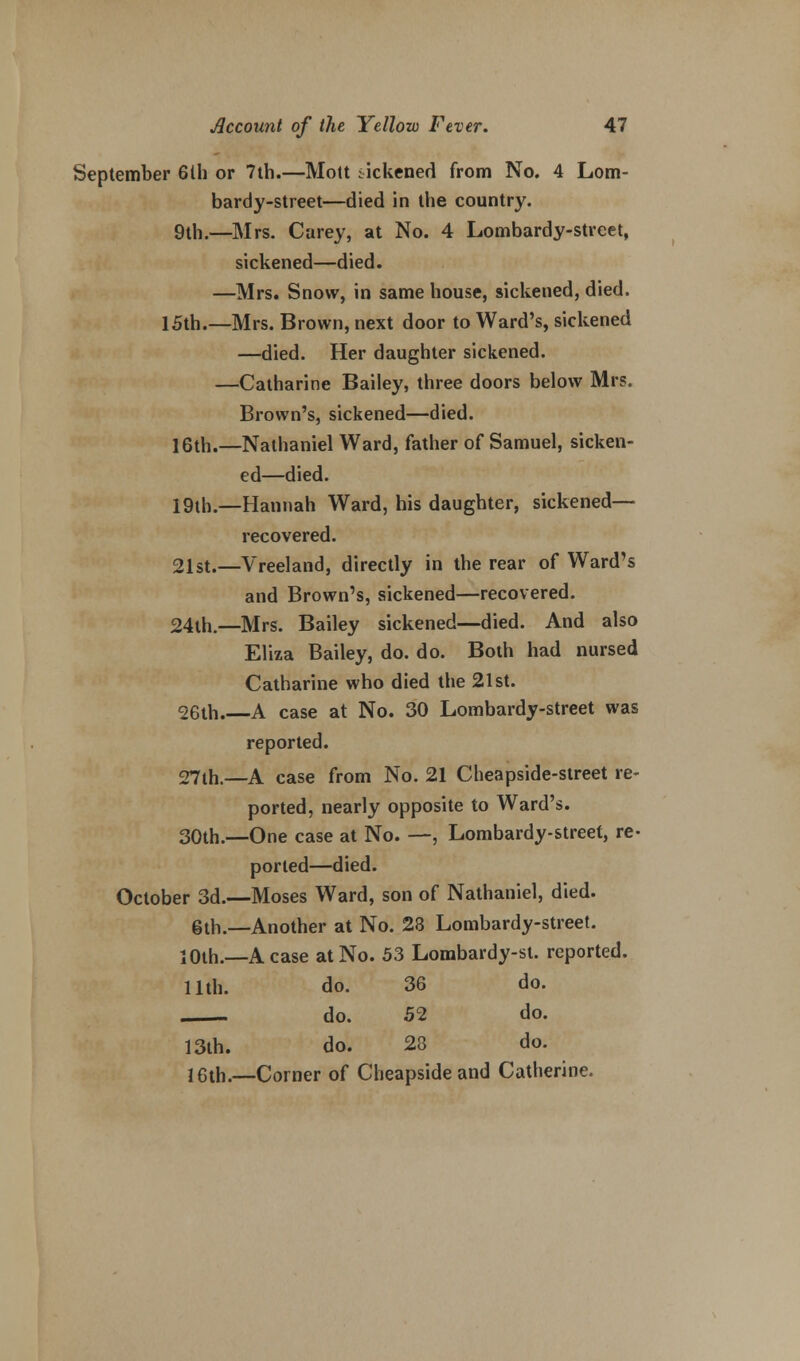 Account of the Yellow Fever. 47
September 6th or 7th.—Mott sickened from No. 4 Lom-
bardy-street—died in the country.
9th.—Mrs. Carey, at No. 4 Lombardy-street,
sickened—died.
—Mrs. Snow, in same house, sickened, died.
15th.—Mrs. Brown, next door to Ward's, sickened
—died. Her daughter sickened.
—Catharine Bailey, three doors below Mrs.
Brown's, sickened—died.
16th.—Nathaniel Ward, father of Samuel, sicken-
ed—died.
19th.—Hannah Ward, his daughter, sickened—
recovered.
21st.—Vreeland, directly in the rear of Ward's
and Brown's, sickened—recovered.
24th.—Mrs. Bailey sickened—died. And also
Eliza Bailey, do. do. Both had nursed
Catharine who died the 21st.
26th.—A case at No. 30 Lombardy-street was
reported.
27th.—A case from No. 21 Cheapside-street re-
ported, nearly opposite to Ward's.
30th.—One case at No. —, Lombardy-street, re-
ported—died.
October 3d.—Moses Ward, son of Nathaniel, died.
6th.—Another at No. 28 Lombardy-street.
10th.—A case at No. 53 Lombardy-st. reported.
11th. do. 36 do.
—— do. 52 do.
13th. do. 28 do.
16th.—Corner of Cheapside and Catherine.